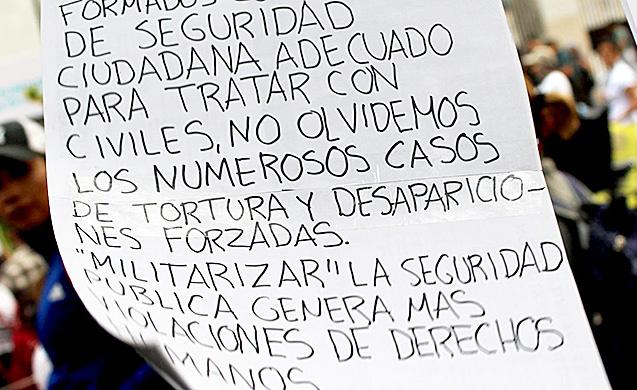 FORMADOS
DE SEGURIDAD
CIUDADANA ADECUADO
PARA TRATAR CON
CIVILES, NO OLVIDEMOS
LOS NUMEROSOS CASOS
DE TORTURA Y DESAPARICIO-
NES FORZADAS.
"MILITARIZAR" LA SEGURIDAD
PUBLICA GENERA MAS
VIOLACIONES DE DERECHOS
HUMANOS